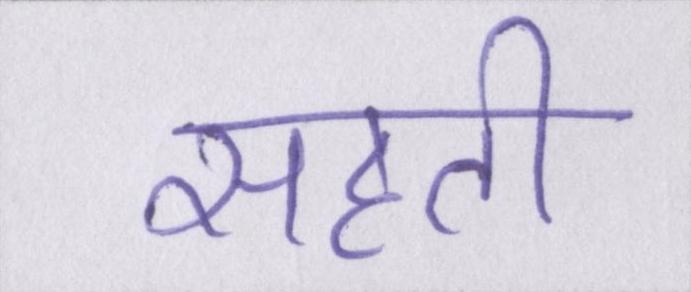 सहती